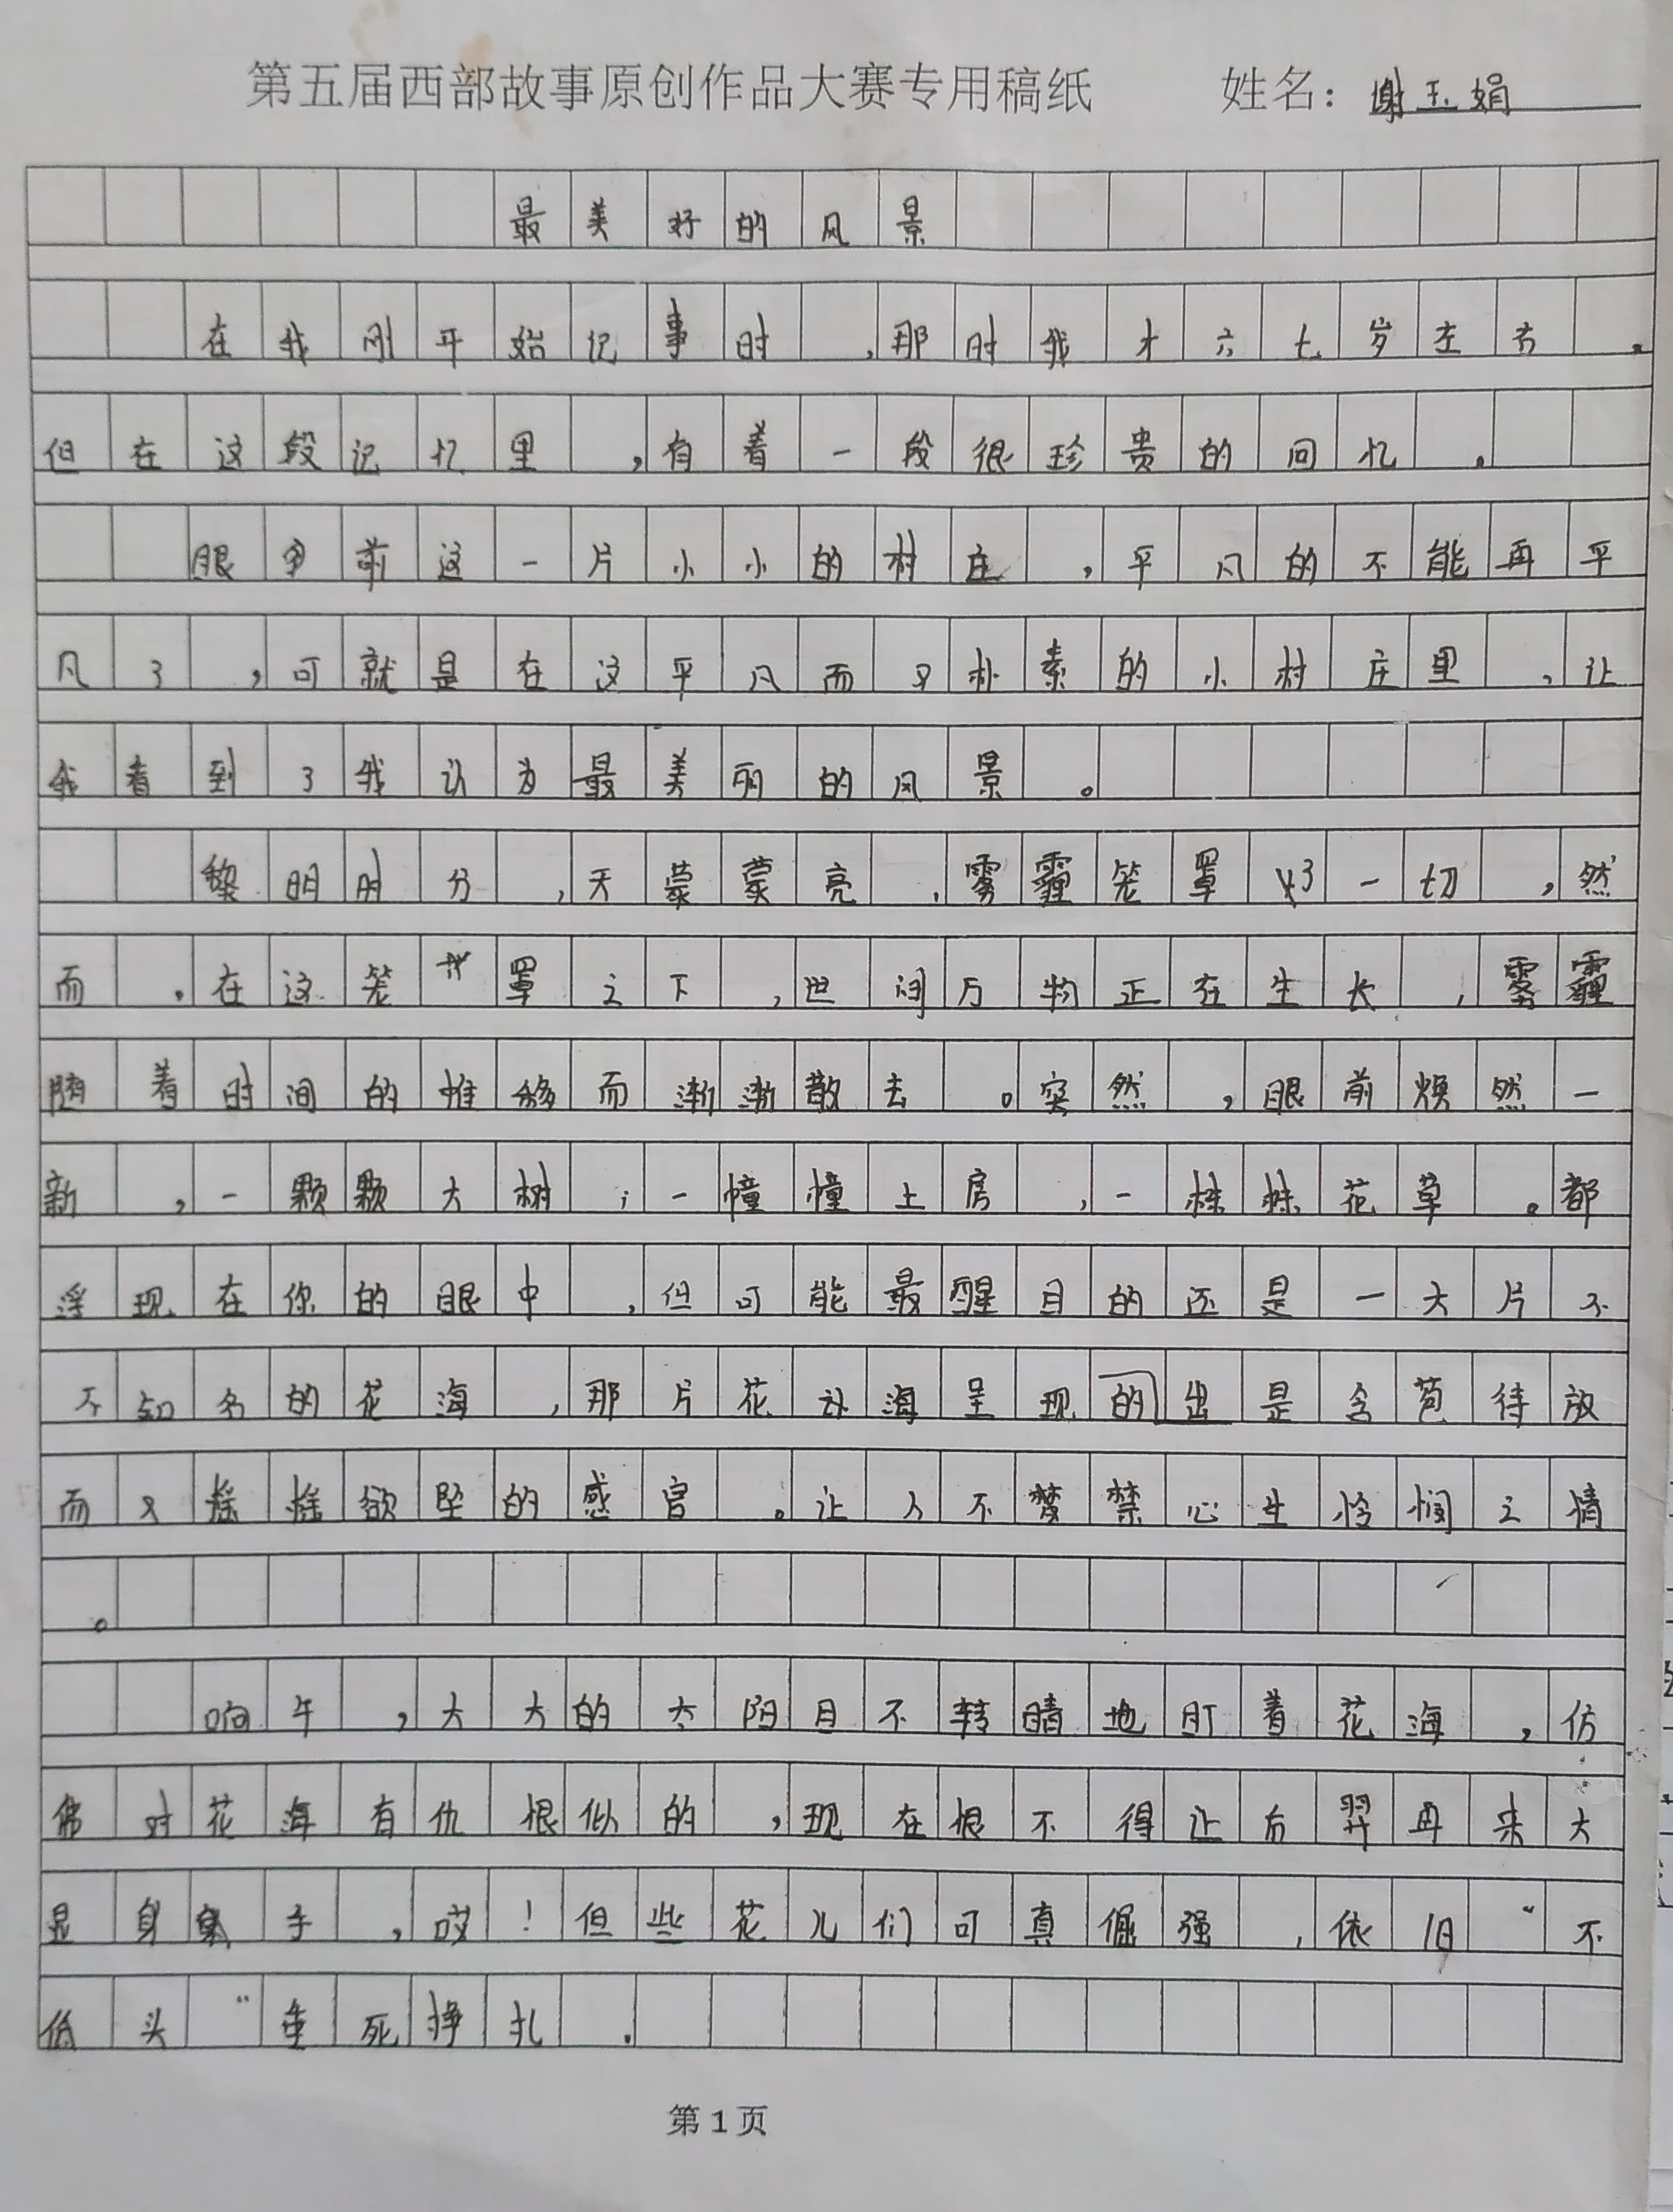 第五届西部故事原创作品大赛专用稿纸 姓名：谢玉娟
最美好的风景
在我刚开始记事时，那时我才六七岁左右。
但在这段记忆里，有着一段很珍贵的回忆。
眼前这一片小小的村庄，平凡的不能再平
凡了，可就是在这平凡而又朴素的小村庄里，让
我看到了我认为最美丽的风景。
黎明时分，天蒙蒙亮，雾霾笼罩了一切，然
而，在这笼罩之下，世间万物正在生长，雾霾
随着时间的推移而渐渐散去。突然，眼前焕然一
新，一颗颗大树；一幢幢土房，一株株花草。都
浮现在你的眼中，但可能最醒目的还是一大片不
不知名的花海，那片花海呈现的出是含苞待放
而又摇摇欲坠的感官。让人不禁心生怜悯之情
。
响午，大大的太阳目不转睛地盯着花海，仿
佛对花海有仇恨似的，现在恨不得让后羿再来大
显身手，哎！但些花儿们可真倔强，依旧“不
低头“垂死挣扎．
第1页